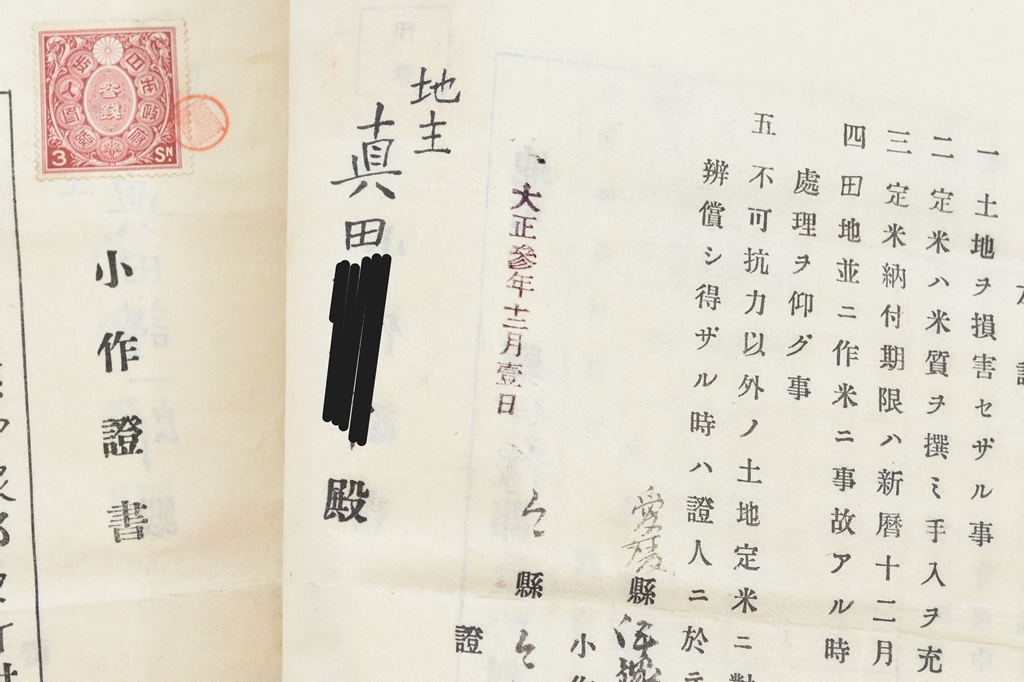 一 土地ヲ損害セザル事
二 定米ハ米質ヲ撰ミ手入ヲ充
三 定米納付期限ハ新暦十二月
四 田地並ニ作米ニ事故アル時
處理ヲ仰グ事
五 不可抗力以外ノ土地定米ニ對
辨償シ得ザル時ハ證人ニ於テ
愛媛縣
小作
大正參年十二月壹日
縣
證
地主
真田
殿
小作證書
3 SN